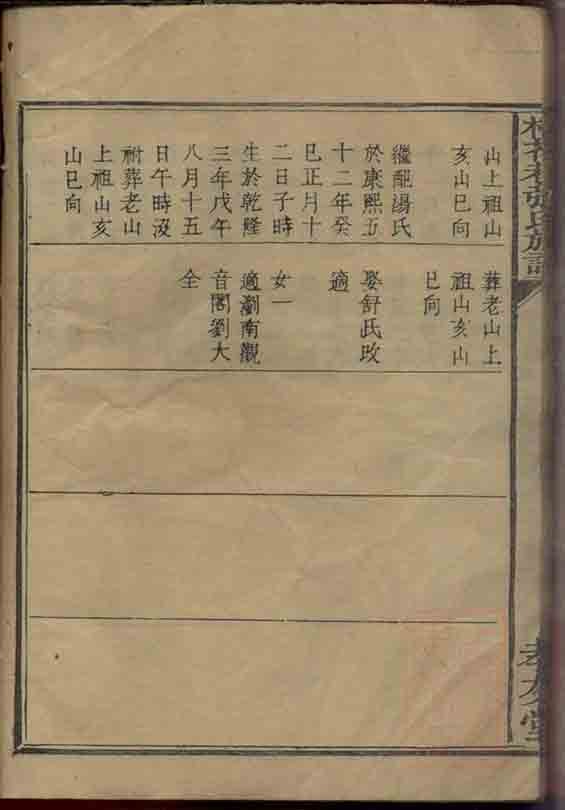 山上祖山
亥山巳向
繼配湯氏
於康熙五
十二年癸
巳正月十
二日子時
生於乾隆
三年戊午
八月十五
日午時沒
祔葬老山
上祖山亥
山巳向
葬老山上
祖山亥山
巳向
娶舒氏改
適
女一
適瀏南觀
音閣劉大
全
氏族譜
孝友堂